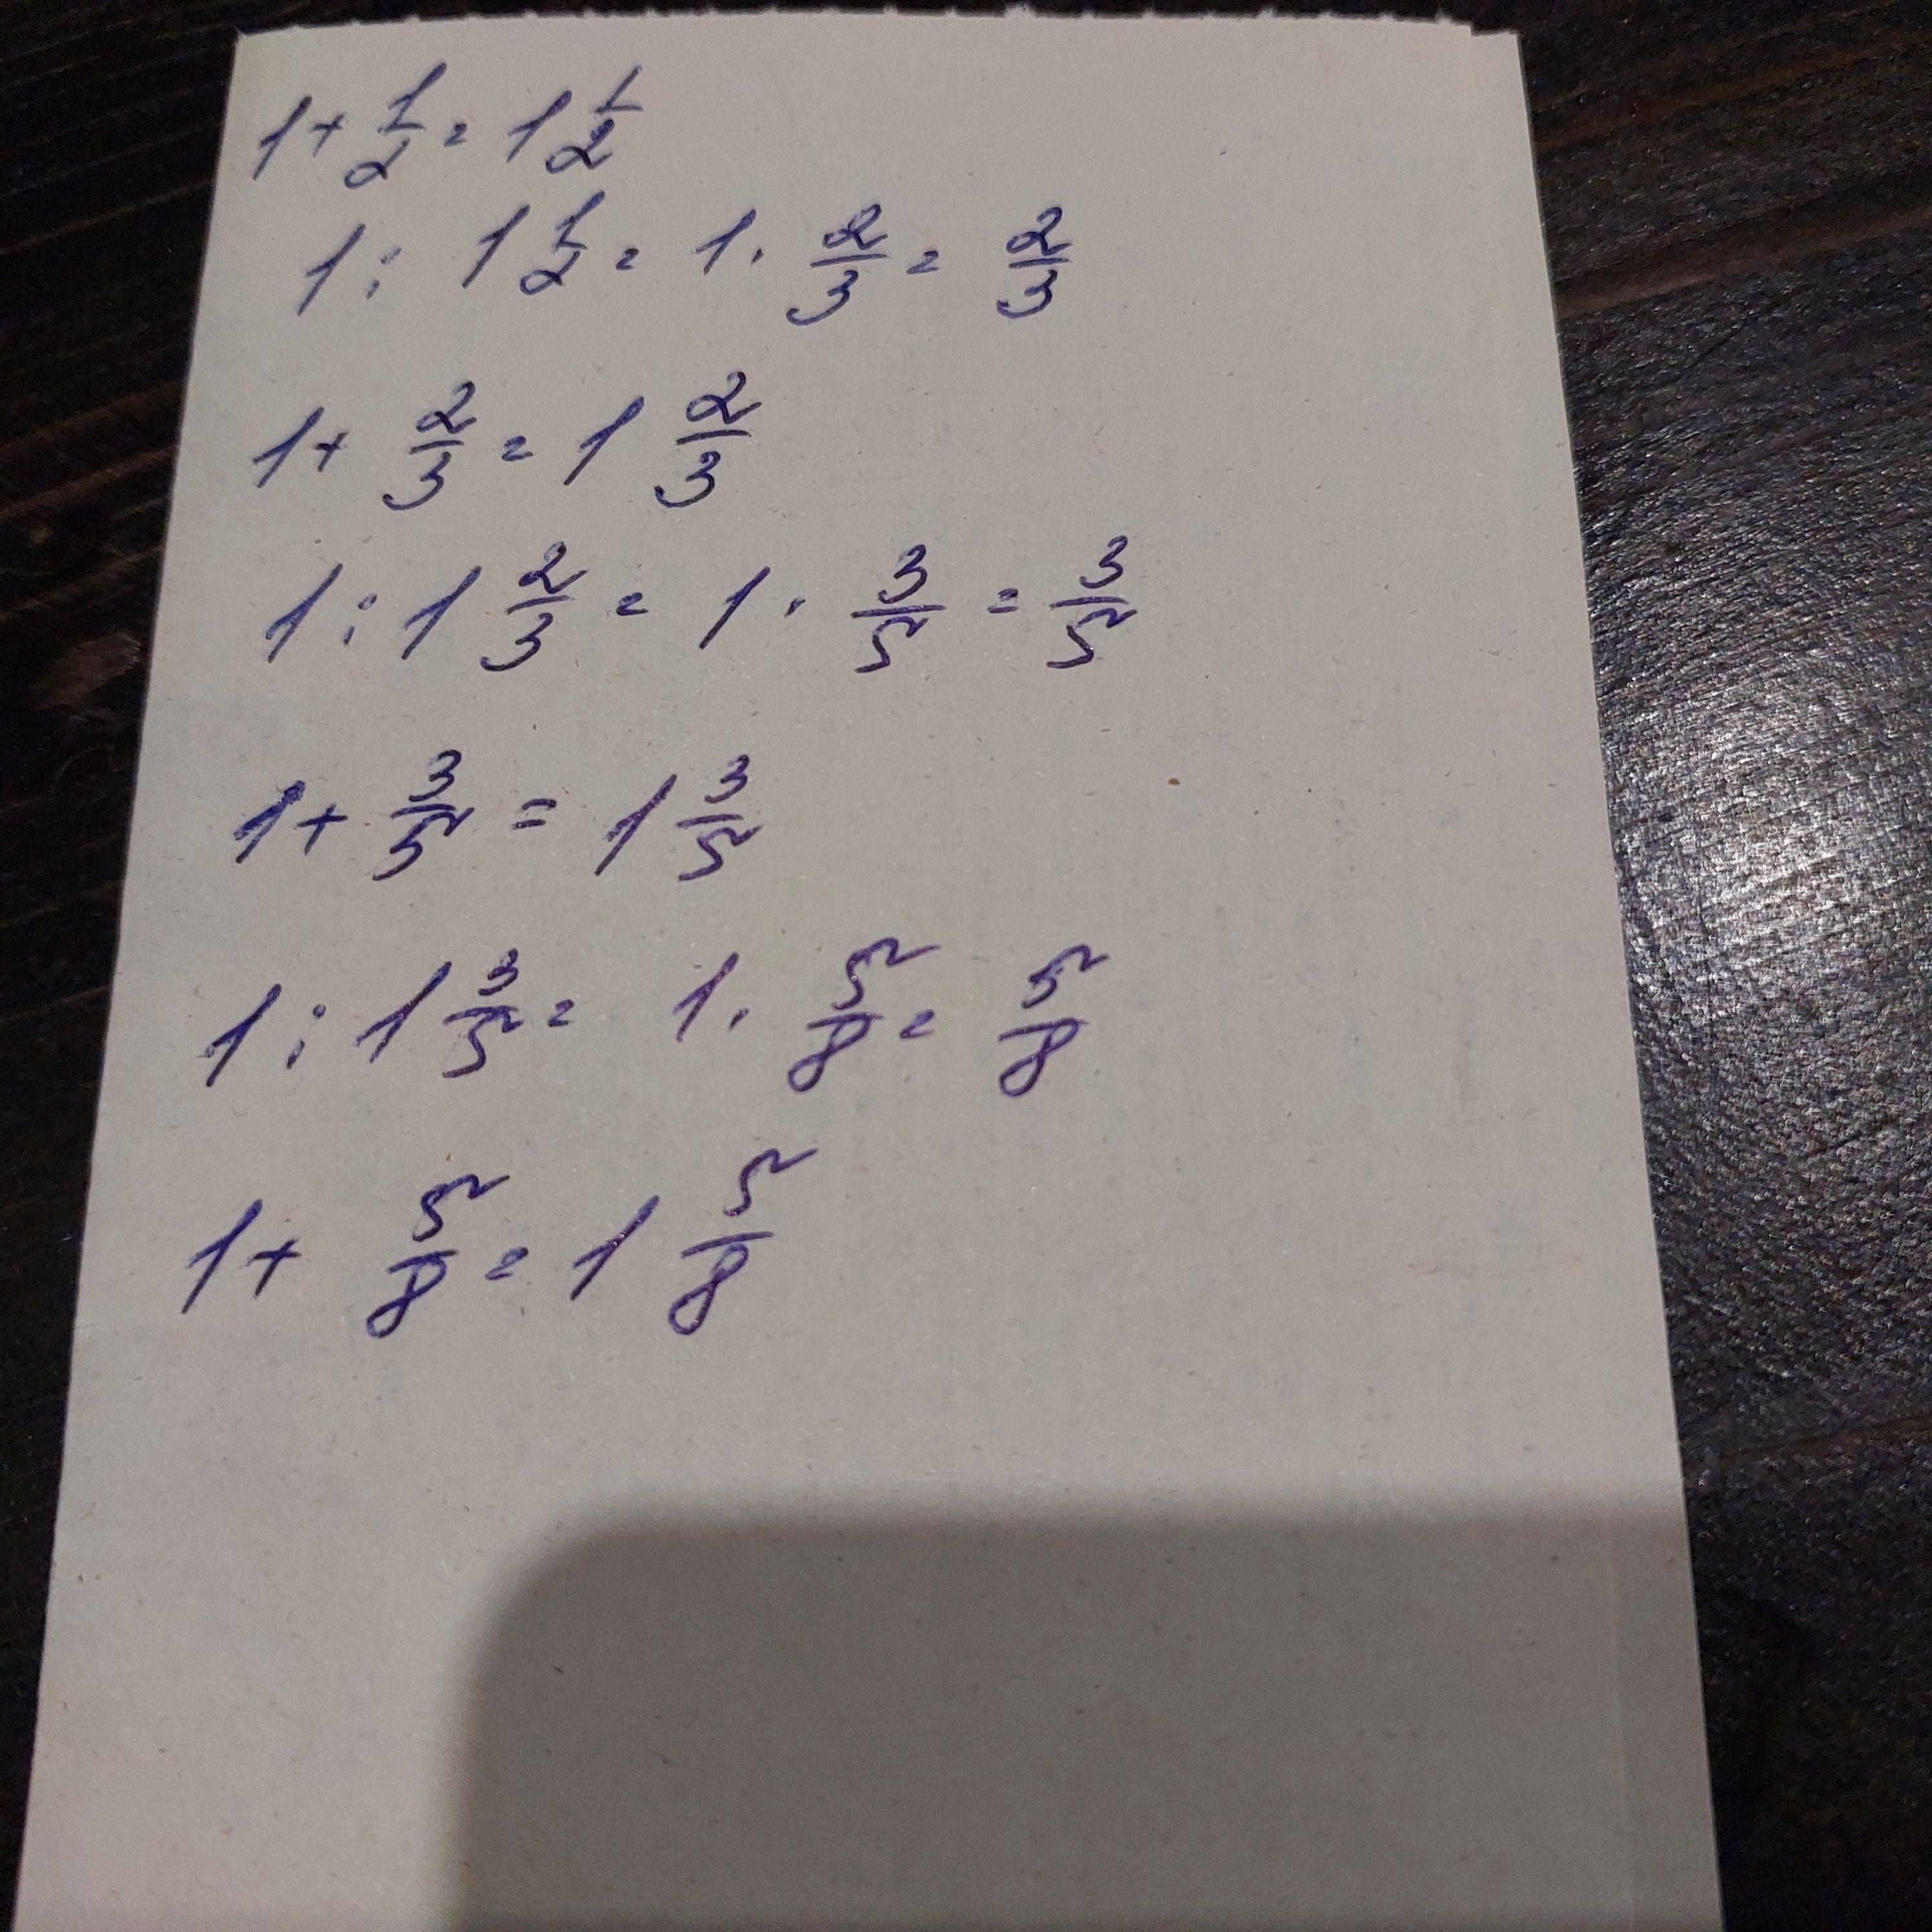 1 + 1/2 = 1 1/2
1 : 1 1/2 = 1 · 2/3 = 2/3
1 + 2/3 = 1 2/3
1 : 1 2/3 = 1 · 3/5 = 3/5
1 + 3/5 = 1 3/5
1 : 1 3/5 = 1 · 5/8 = 5/8
1 + 5/8 = 1 5/8